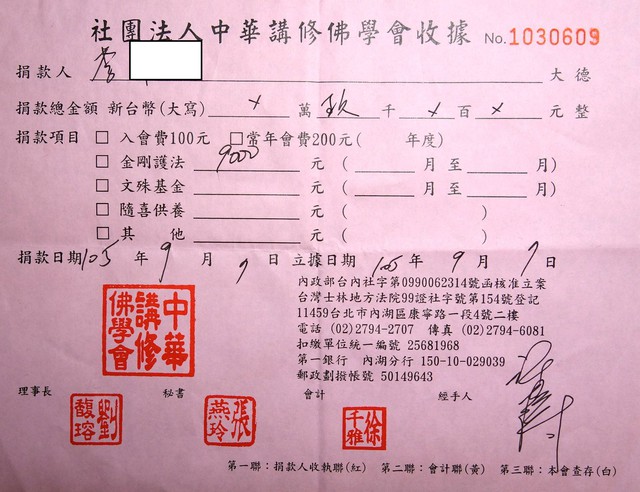 社團法人中華講修佛學會收據 No.1030609
捐款人 李 大德
捐款總金額 新台幣(大寫) × 萬 玖 千 × 百 × 元 整
捐款項目 □ 入會費100元 □常年會費200元( 年度)
□ 金剛護法 9000 元 ( 月 至 月)
□ 文殊基金 元 ( 月 至 月)
□ 隨喜供養 元 ( )
□ 其 他 元 ( )
捐款日期 105 年 9 月 7 日 立據日期 105 年 9 月 7 日
中華講修佛學會
內政部台內社字第0990062314號函核准立案
台灣士林地方法院99證社字號第154號登記
11459台北市內湖區康寧路一段4號二樓
電話 (02)2794-2707 傳真 (02)2794-6081
扣繳單位統一編號 25681968
第一銀行 內湖分行 150-10-029039
郵政劃撥帳號 50149643
理事長 秘書 會計 經手人
劉馥瑢 張燕玲 徐千雅
第一聯：捐款人收執聯(紅) 第二聯：會計聯(黃) 第三聯：本會查存(白)